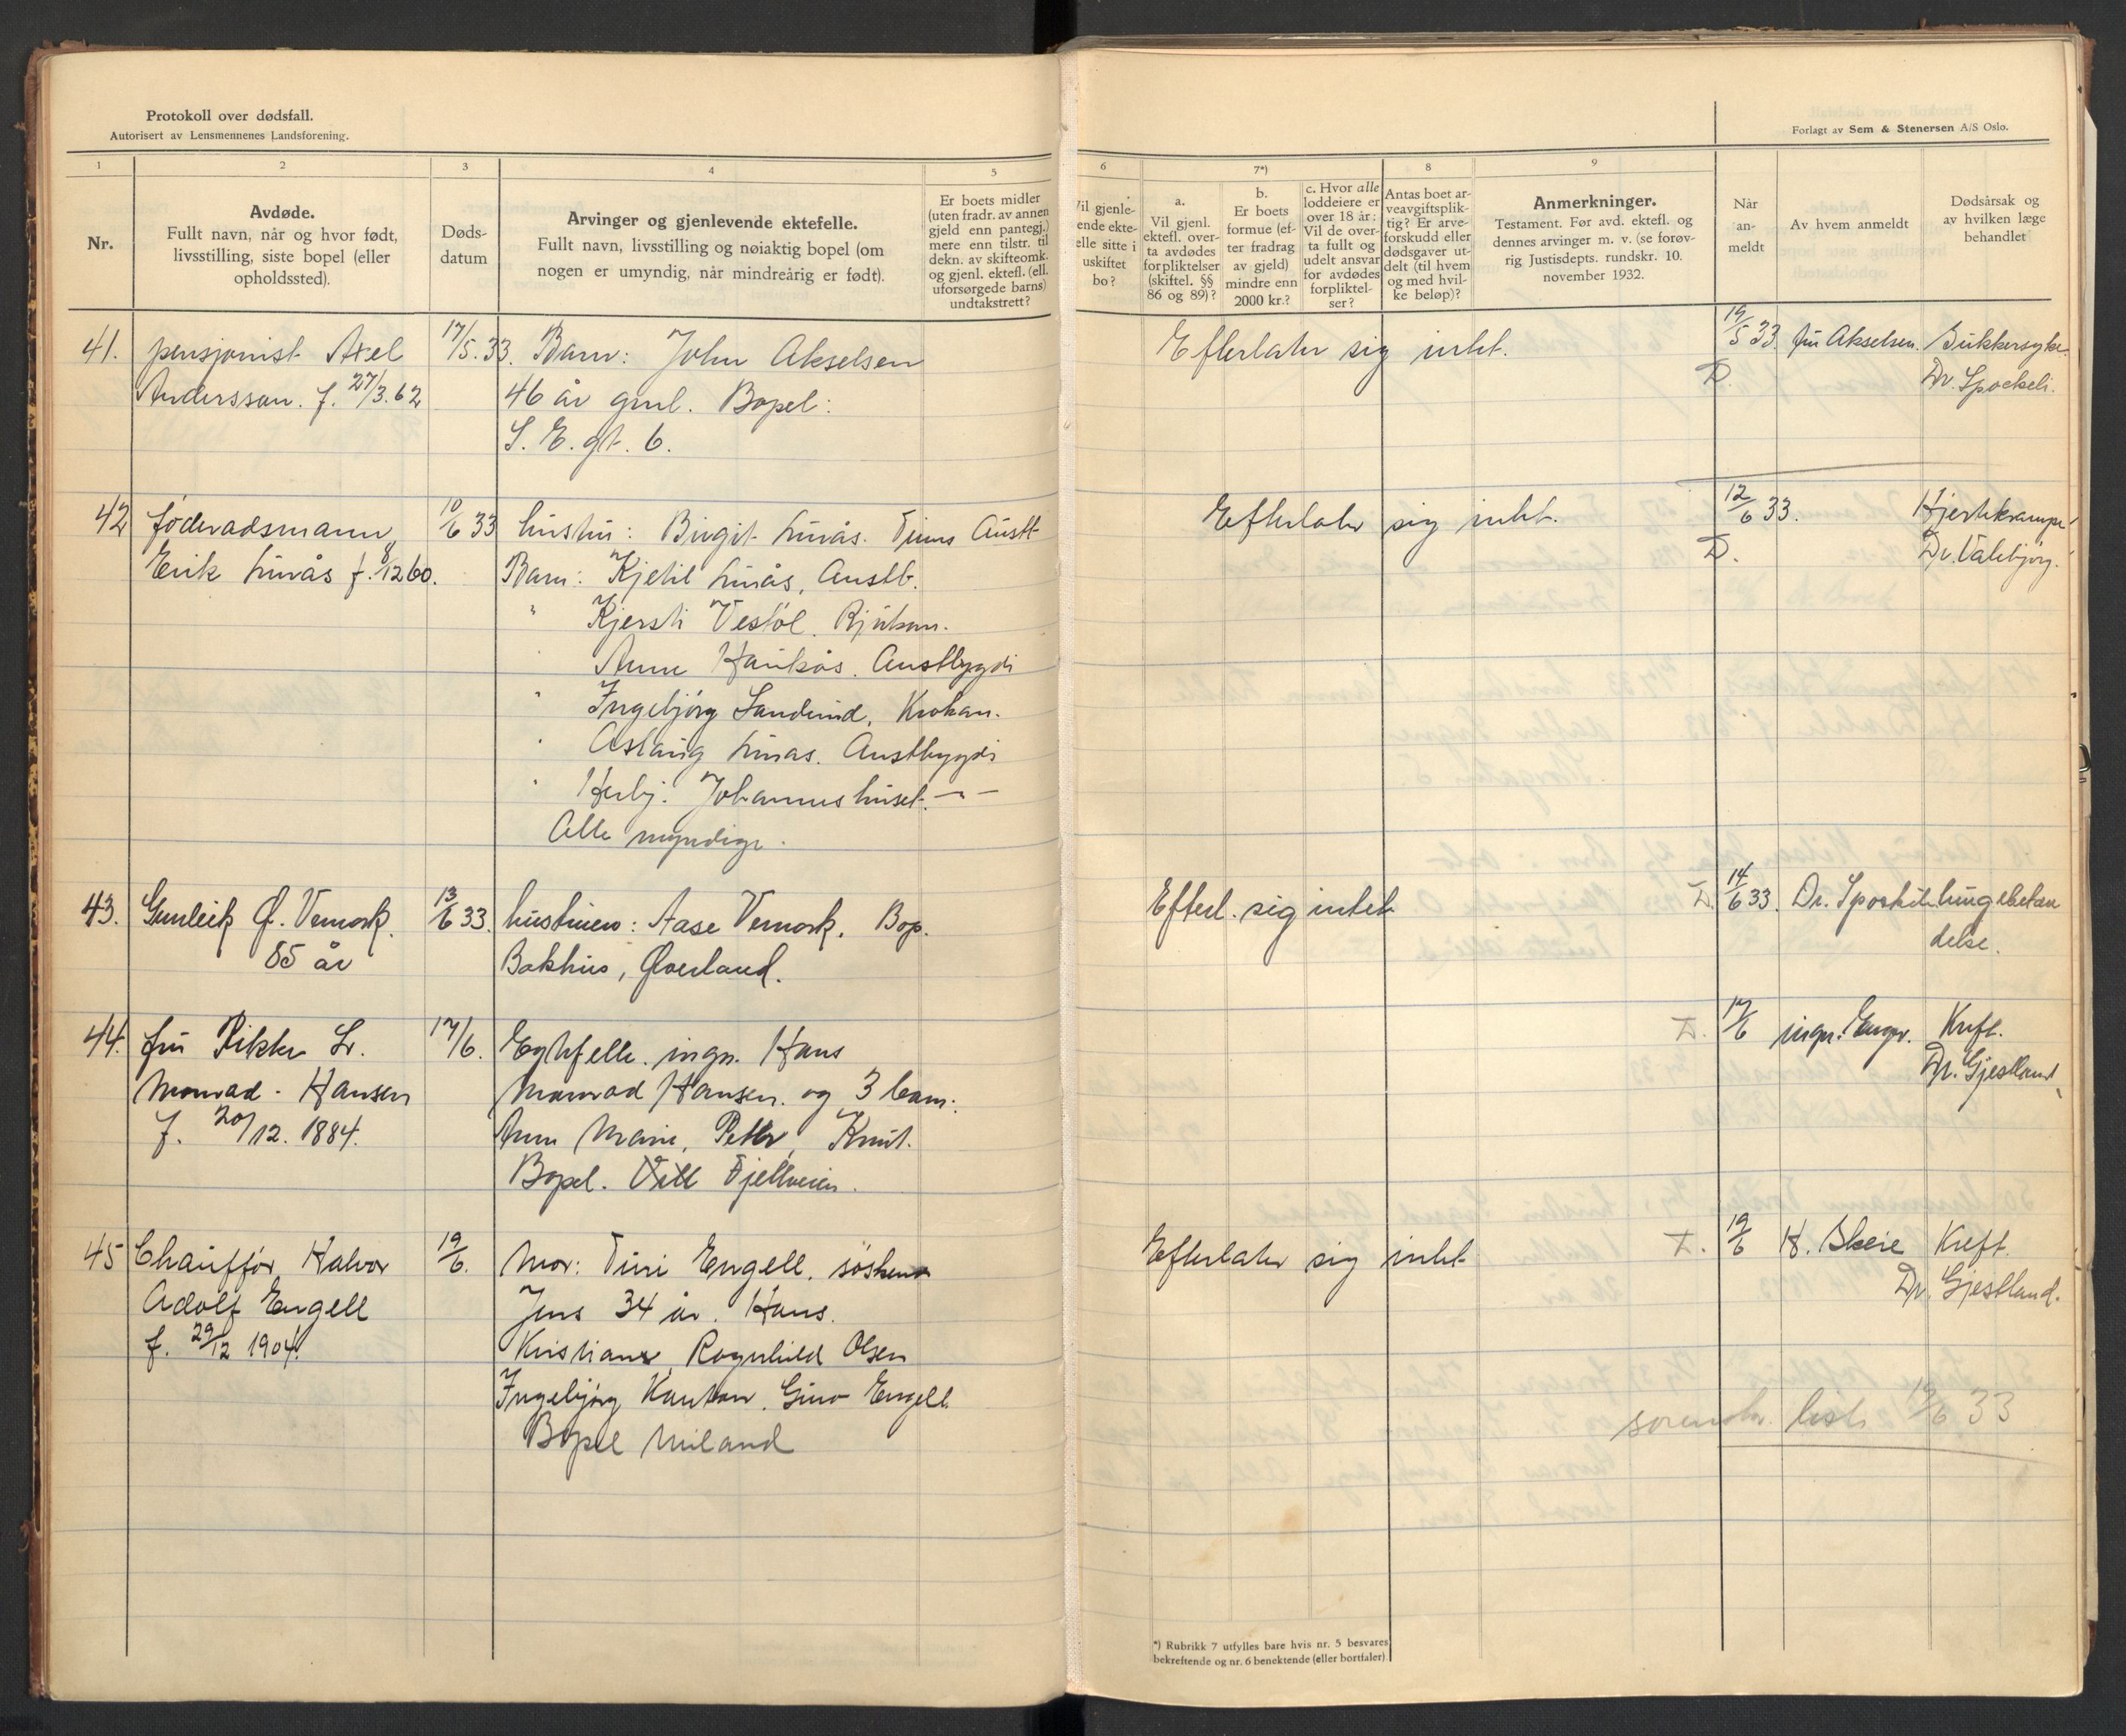 Protokoll over dødsfall.
Autorisert av Lensmennenes Landsforening.
1
2
3
4
5
Nr.
Avdøde.
Fullt navn, når og hvor født,
livsstilling, siste bopel (eller
opholdssted).
Døds-
datum
Arvinger og gjenlevende ektefelle.
Fullt navn, livsstilling og nøiaktig bopel (om
nogen er umyndig, når mindreårig er født).
Er boets midler
(uten fradr. av annen
gjeld enn pantegj.)
mere enn tilstr. til
dekn. av skifteomk.
og gjenl. ektefl. (ell.
uforsørgede barns)
undtakstrett?
41. pensjonist Axel 17/5.33. Barn: John Akselsen
Andersson. f. 27/3.62 46 år gml. Bopel:
S. E. gt. 6.
42 föderådsmann 10/6 33 hustru: Birgit Lurås. Tinns Austb
Erik Luraas f. 8/12 60. Barn: Kjetil Luraas, Austb.
" Kjersti Vestöl. Rjukan.
" Anne Haukås. Austbygdi
" Ingebjörg Sandvind, Krokan.
" Aslaug Luras. Austbygdi
" Herbj. Johannushuset. — " —
Alle myndige.
43. Gunleik O. Vemork. 13/6 33. hustruen: Aase Vemork. Bop.
85 år Bakhus, Øverland.
44. fru Rikke Lr. 17/6. Egtefelle. ingn. Hans
Monrad-Hansen Monrad Hansen. og 3 barn:
f. 20/12. 1884. Ann Marie, Petter, Knut.
Bopel. Vill Fjellveien.
45 Chauffør Halvor 19/6. Mor: Turi Engell. söskend
Adolf Engell Jens 34 år. Hans.
f. 29/12 1904. Kristiane, Ragnhild Olsen
Ingebjörg Kanten. Gina Engell.
Bopel Miland
Forlagt av Sem & Stenersen A/S Oslo.
6
7*)
8
9
Vil gjenle-
vende ekte-
felle sitte i
uskiftet
bo?
a.
Vil gjenl.
ektefl. over-
ta avdødes
forpliktelser
(skiftel. §§
86 og 89)?
b.
Er boets
formue (ef-
ter fradrag
av gjeld)
mindre enn
2000 kr.?
c. Hvor alle
loddeiere er
over 18 år:
Vil de over-
ta fullt og
udelt ansvar
for avdødes
forpliktel-
ser?
Antas boet ar-
veavgiftsplik-
tig? Er arve-
forskudd eller
dødsgaver ut-
delt (til hvem
og med hvil-
ke beløp)?
Anmerkninger.
Testament. Før avd. ektefl. og
dennes arvinger m. v. (se forøv-
rig Justisdepts. rundskr. 10.
november 1932.
Når
an-
meldt
Av hvem anmeldt
Dødsårsak og
av hvilken læge
behandlet
Efterlater sig intet. 19/5 33. fru Akselsen. Sukkersyke.
D. Dr. Spockeli.
Efterlater sig intet. 12/6 33. Hjertekrampe
D. Dr. Valebjörg.
Efterl. sig intet D. 14/6 33. Dr. Spockeli lungebetæn
delse.
D. 17/6 ingn. Kreft.
Dr. Gjestland
Efterlater sig intet D. 19/6 H. Skeie Kreft.
Dr. Gjestland.
sorenskr. liste 19/6 33
*) Rubrikk 7 utfylles bare hvis nr. 5 besvares
bekreftende og nr. 6 benektende (eller bortfaler).